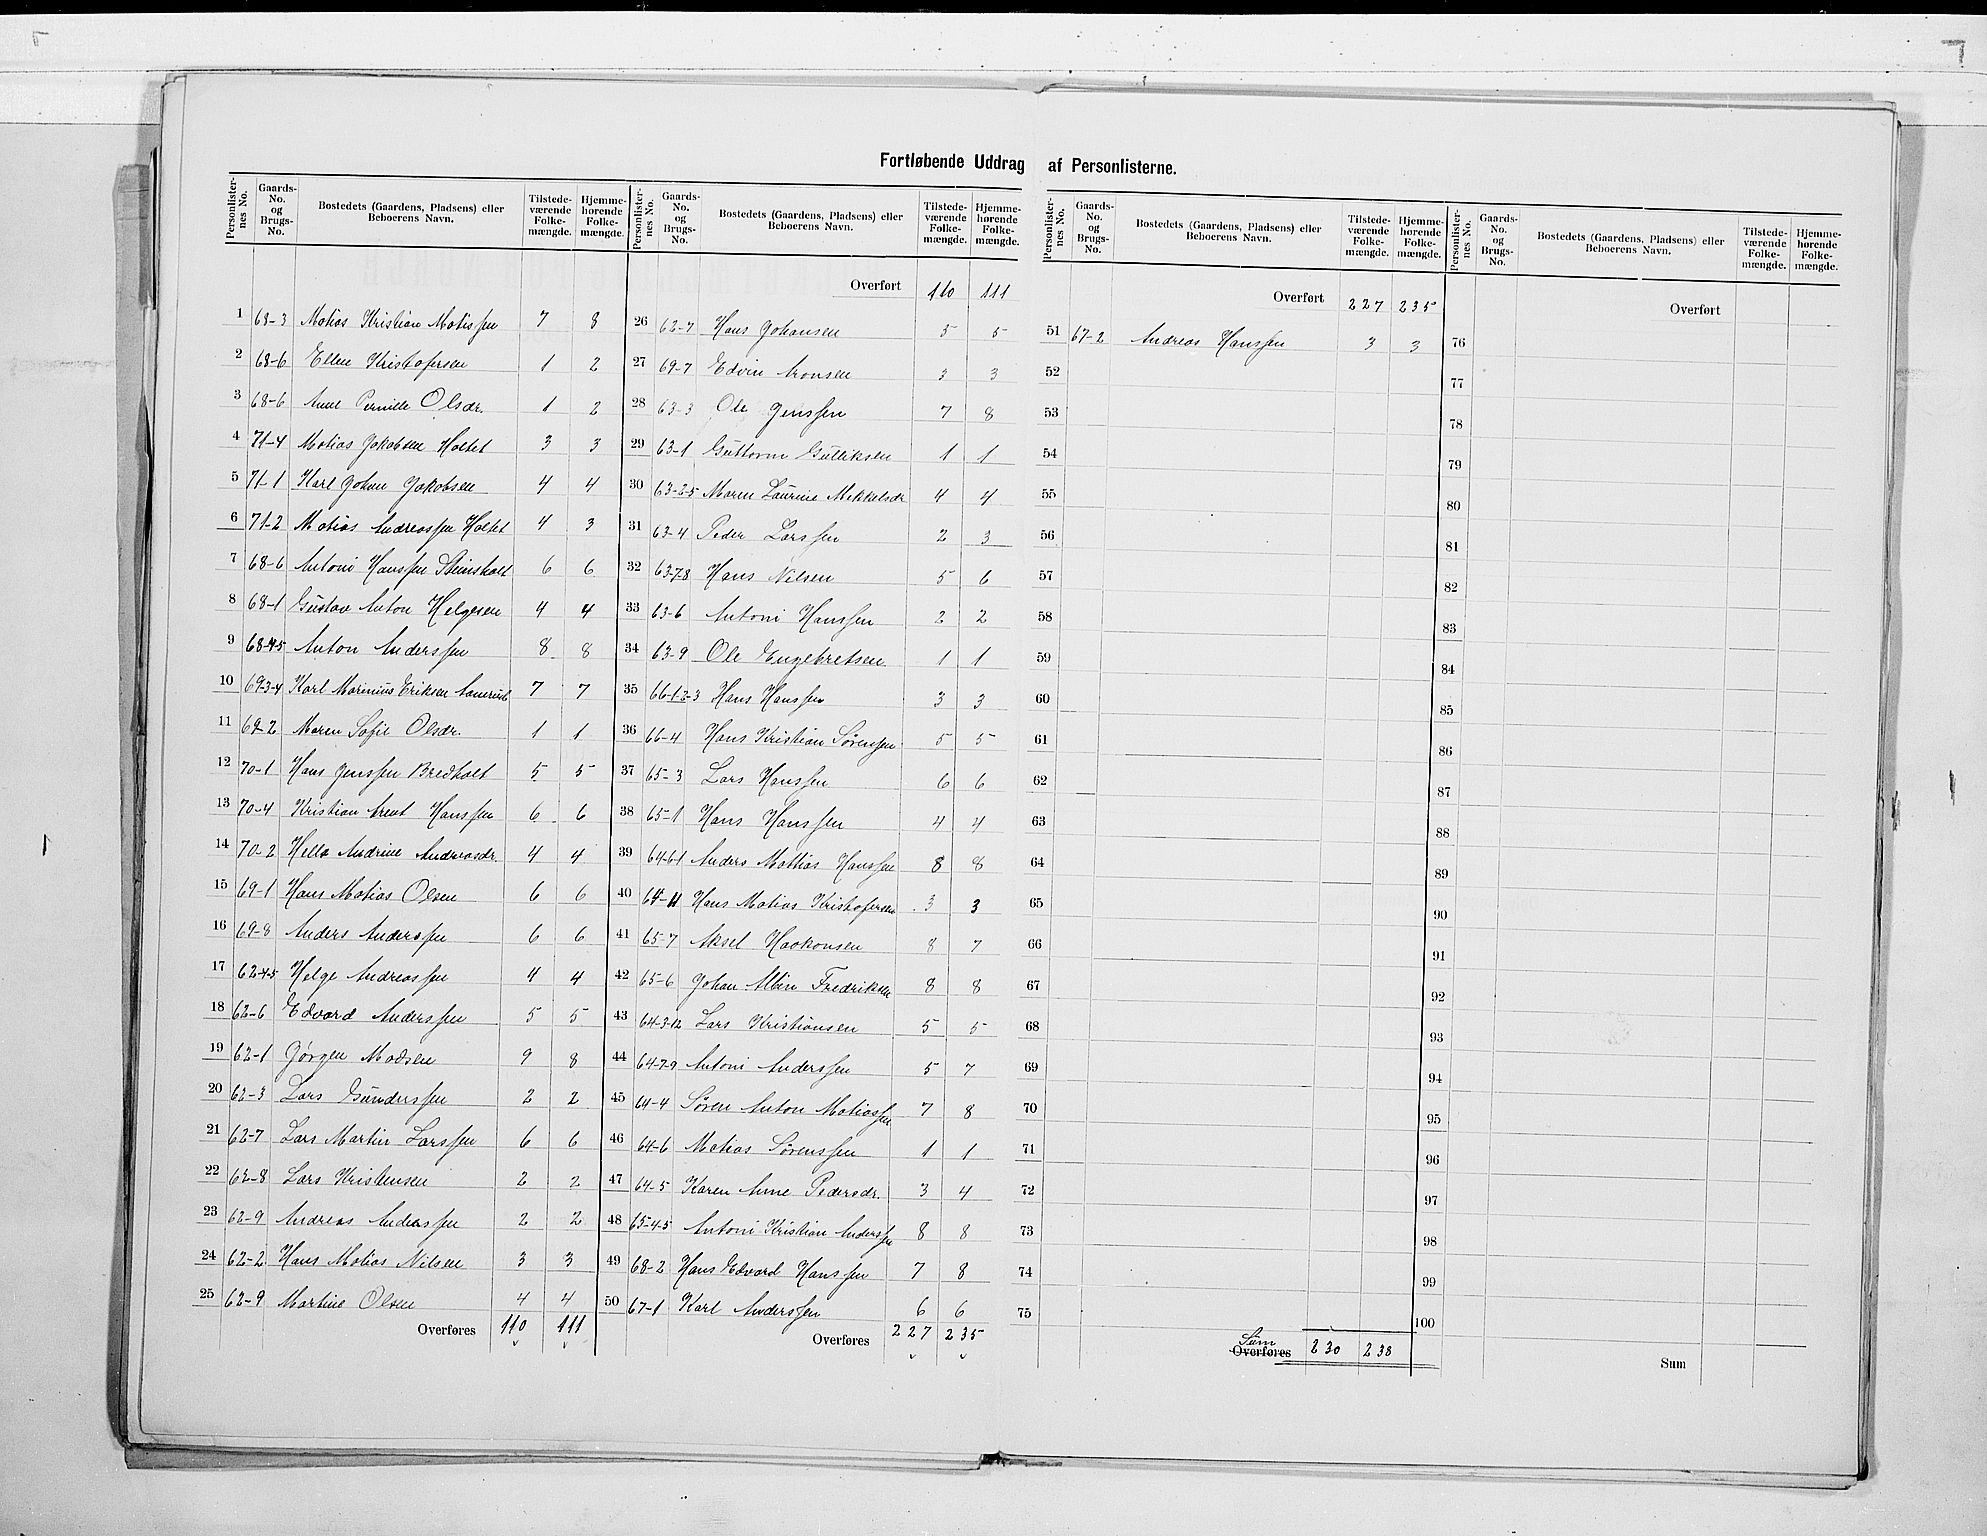 Fortløbende Uddrag af Personlisterne.
Personlister-nes No. | Gaards-No. og Brugs-No. | Bostedets (Gaardens, Pladsens) eller Beboerens Navn. | Tilstede-værende Folke-mængde. | Hjemme-hørende Folke-mængde.
1 68-3 Matias Kristian Matissen 7 8
2 68-6 Ellen Kristofersen 1 2
3 68-6 Anne Pernille Olsdr. 1 2
4 71-4 Matias Jakobsen Holtet 3 3
5 71-1 Karl Johan Jakobsen 4 4
6 71-2 Matias Andreassen Holtet 4 3
7 68-6 Antoni Hanssen Steinsholt 6 6
8 68-1 Gustav Anton Helgesen 4 4
9 68-4-5 Anton Anderssen 8 8
10 69-3-4 Karl Marinius Eriksen 7 7
11 69-2 Maren Sofie Olsdr. 1 1
12 70-1 Hans Jenssen Bredholt 5 5
13 70-4 Kristian Arent Hanssen 6 6
14 70-2 Helle Andrine Andreasdr. 4 4
15 69-1 Hans Matias Olsen 6 6
16 69-8 Anders Anderssen 6 6
17 62-4-5 Helge Andreassen 4 4
18 62-6 Edvard Anderssen 5 5
19 62-1 Jørgen Madsen 9 8
20 62-3 Lars Gunderssen 2 2
21 62-7 Lars Martin Larssen 6 6
22 62-8 Lars Kristensen 2 2
23 62-9 Andreas Anderssen 2 2
24 62-2 Hans Matias Nilsen 3 3
25 62-9 Martine Olsen 4 4
Overføres 110 111
Personlister-nes No. | Gaards-No. og Brugs-No. | Bostedets (Gaardens, Pladsens) eller Beboerens Navn. | Tilstede-værende Folke-mængde. | Hjemme-hørende Folke-mængde.
Overført 110 111
26 62-7 Hans Johansen 5 5
27 69-7 Edvin Aronsen 3 3
28 63-3 Ole Jenssen 7 8
29 63-1 Guttorm Gulliksen 1 1
30 63-2-5 Maren Laurine Mikkelsdr 4 4
31 63-4 Peder Larssen 2 3
32 63-7-8 Hans Nilsen 5 6
33 63-6 Antoni Hanssen 2 2
34 63-9 Ole Engebretsen 1 1
35 66-1-2-3 Hans Hanssen 3 3
36 66-4 Hans Kristian Sørenssen 5 5
37 65-3 Lars Hanssen 6 6
38 65-1 Hans Hanssen 4 4
39 64-6-1 Anders Mathias Hanssen 8 8
40 64-11 Hans Matias Kristofersen 3 3
41 65-7 Aksel Haakonsen 8 7
42 65-6 Johan Albin Fredriksen 8 8
43 64-3-12 Lars Kristiansen 5 5
44 64-7-9 Antoni Anderssen 5 7
45 64-4 Søren Anton Matiassen 7 8
46 64-6 Matias Sørenssen 1 1
47 64-5 Karen Anne Pedersdr. 3 4
48 65-4-5 Antoni Kristian Anderssen 8 8
49 68-2 Hans Edvard Hanssen 7 8
50 67-1 Karl Anderssen 6 6
Overføres 227 235
Personlister-nes No. | Gaards-No. og Brugs-No. | Bostedets (Gaardens, Pladsens) eller Beboerens Navn. | Tilstede-værende Folke-mængde. | Hjemme-hørende Folke-mængde.
Overført 227 235
51 67-2 Andreas Hanssen 3 3
52
53
54
55
56
57
58
59
60
61
62
63
64
65
66
67
68
69
70
71
72
73
74
75
Sum
Overføres 230 238
Personlister-nes No. | Gaards-No. og Brugs-No. | Bostedets (Gaardens, Pladsens) eller Beboerens Navn. | Tilstede-værende Folke-mængde. | Hjemme-hørende Folke-mængde.
Overført
76
77
78
79
80
81
82
83
84
85
86
87
88
89
90
91
92
93
94
95
96
97
98
99
100
Sum